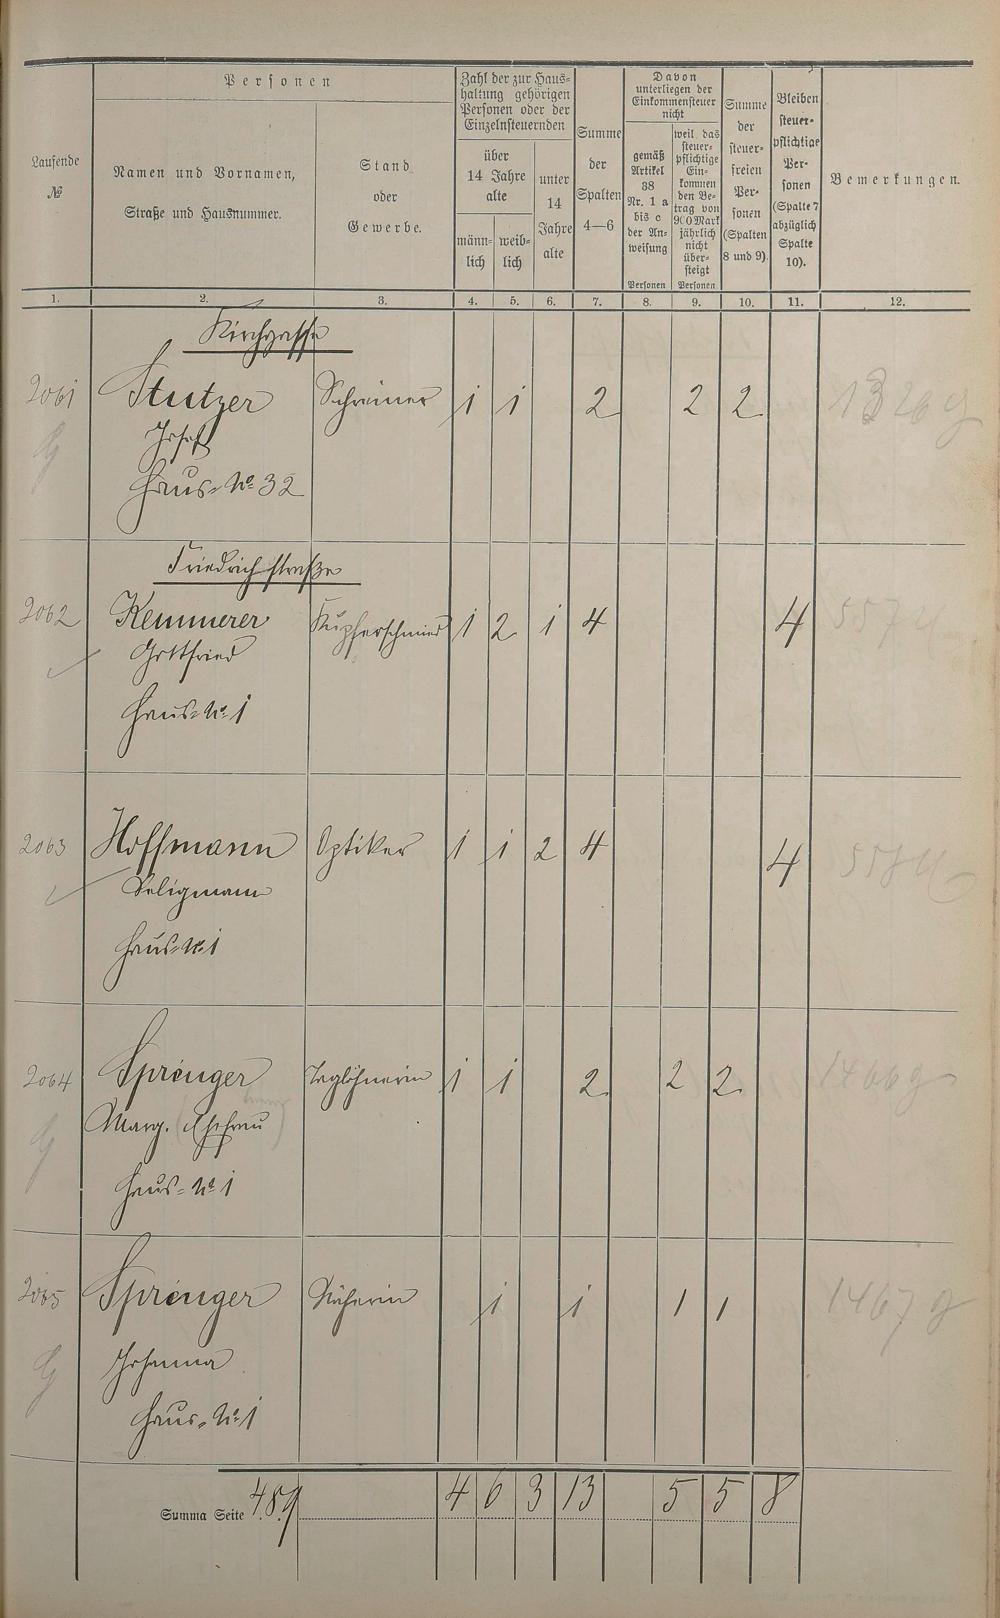 Personen
Laufende
№
Namen und Vornamen,
Straße und Hausnummer.
Stand
oder
Gewerbe.
Zahl der zur Haus-
haltung gehörigen
Personen oder der
Einzelnsteuernden
über
14 Jahre
alte
männ-
lich
weib-
lich
unter
14
Jahre
alte
Summe
der
Spalten
4—6
Davon
unterliegen der
Einkommensteuer
nicht
gemäß
Artikel
38
Nr. 1 a
bis c
der An-
weisung
Personen
weil das
steuer-
pflichtige
Ein-
kommen
den Be-
trag von
900 Mark
jährlich
nicht
über-
steigt
Personen
Summe
der
steuer-
freien
Per-
sonen
(Spalten
8 und 9).
Bleiben
steuer-
pflichtige
Per-
sonen
(Spalte 7
abzüglich
Spalte
10).
Bemerkungen.
1. 2. 3. 4. 5. 6. 7. 8. 9. 10. 11. 12.
Kirchgasse
2061 Stutzer Schreiner 1 1 2 2 2 1326 g
Josef
Haus-No 32
Friedrichstraße
2062 Kemmerer Kupferschmied 1 2 1 4 4 557
Gottfried
Haus-No 1
2063 Hoffmann Optiker 1 1 2 4 4 558
Seligmann
Haus-No 1
2064 Sprenger Taglöhnerin 1 1 2 2 2 1466 g
Marg. Ehefrau
Haus-No 1
2065 Sprenger Näherin 1 1 1 1 1467 g
Johanna
Haus-No 1
Summa Seite 489 4 6 3 13 5 5 8